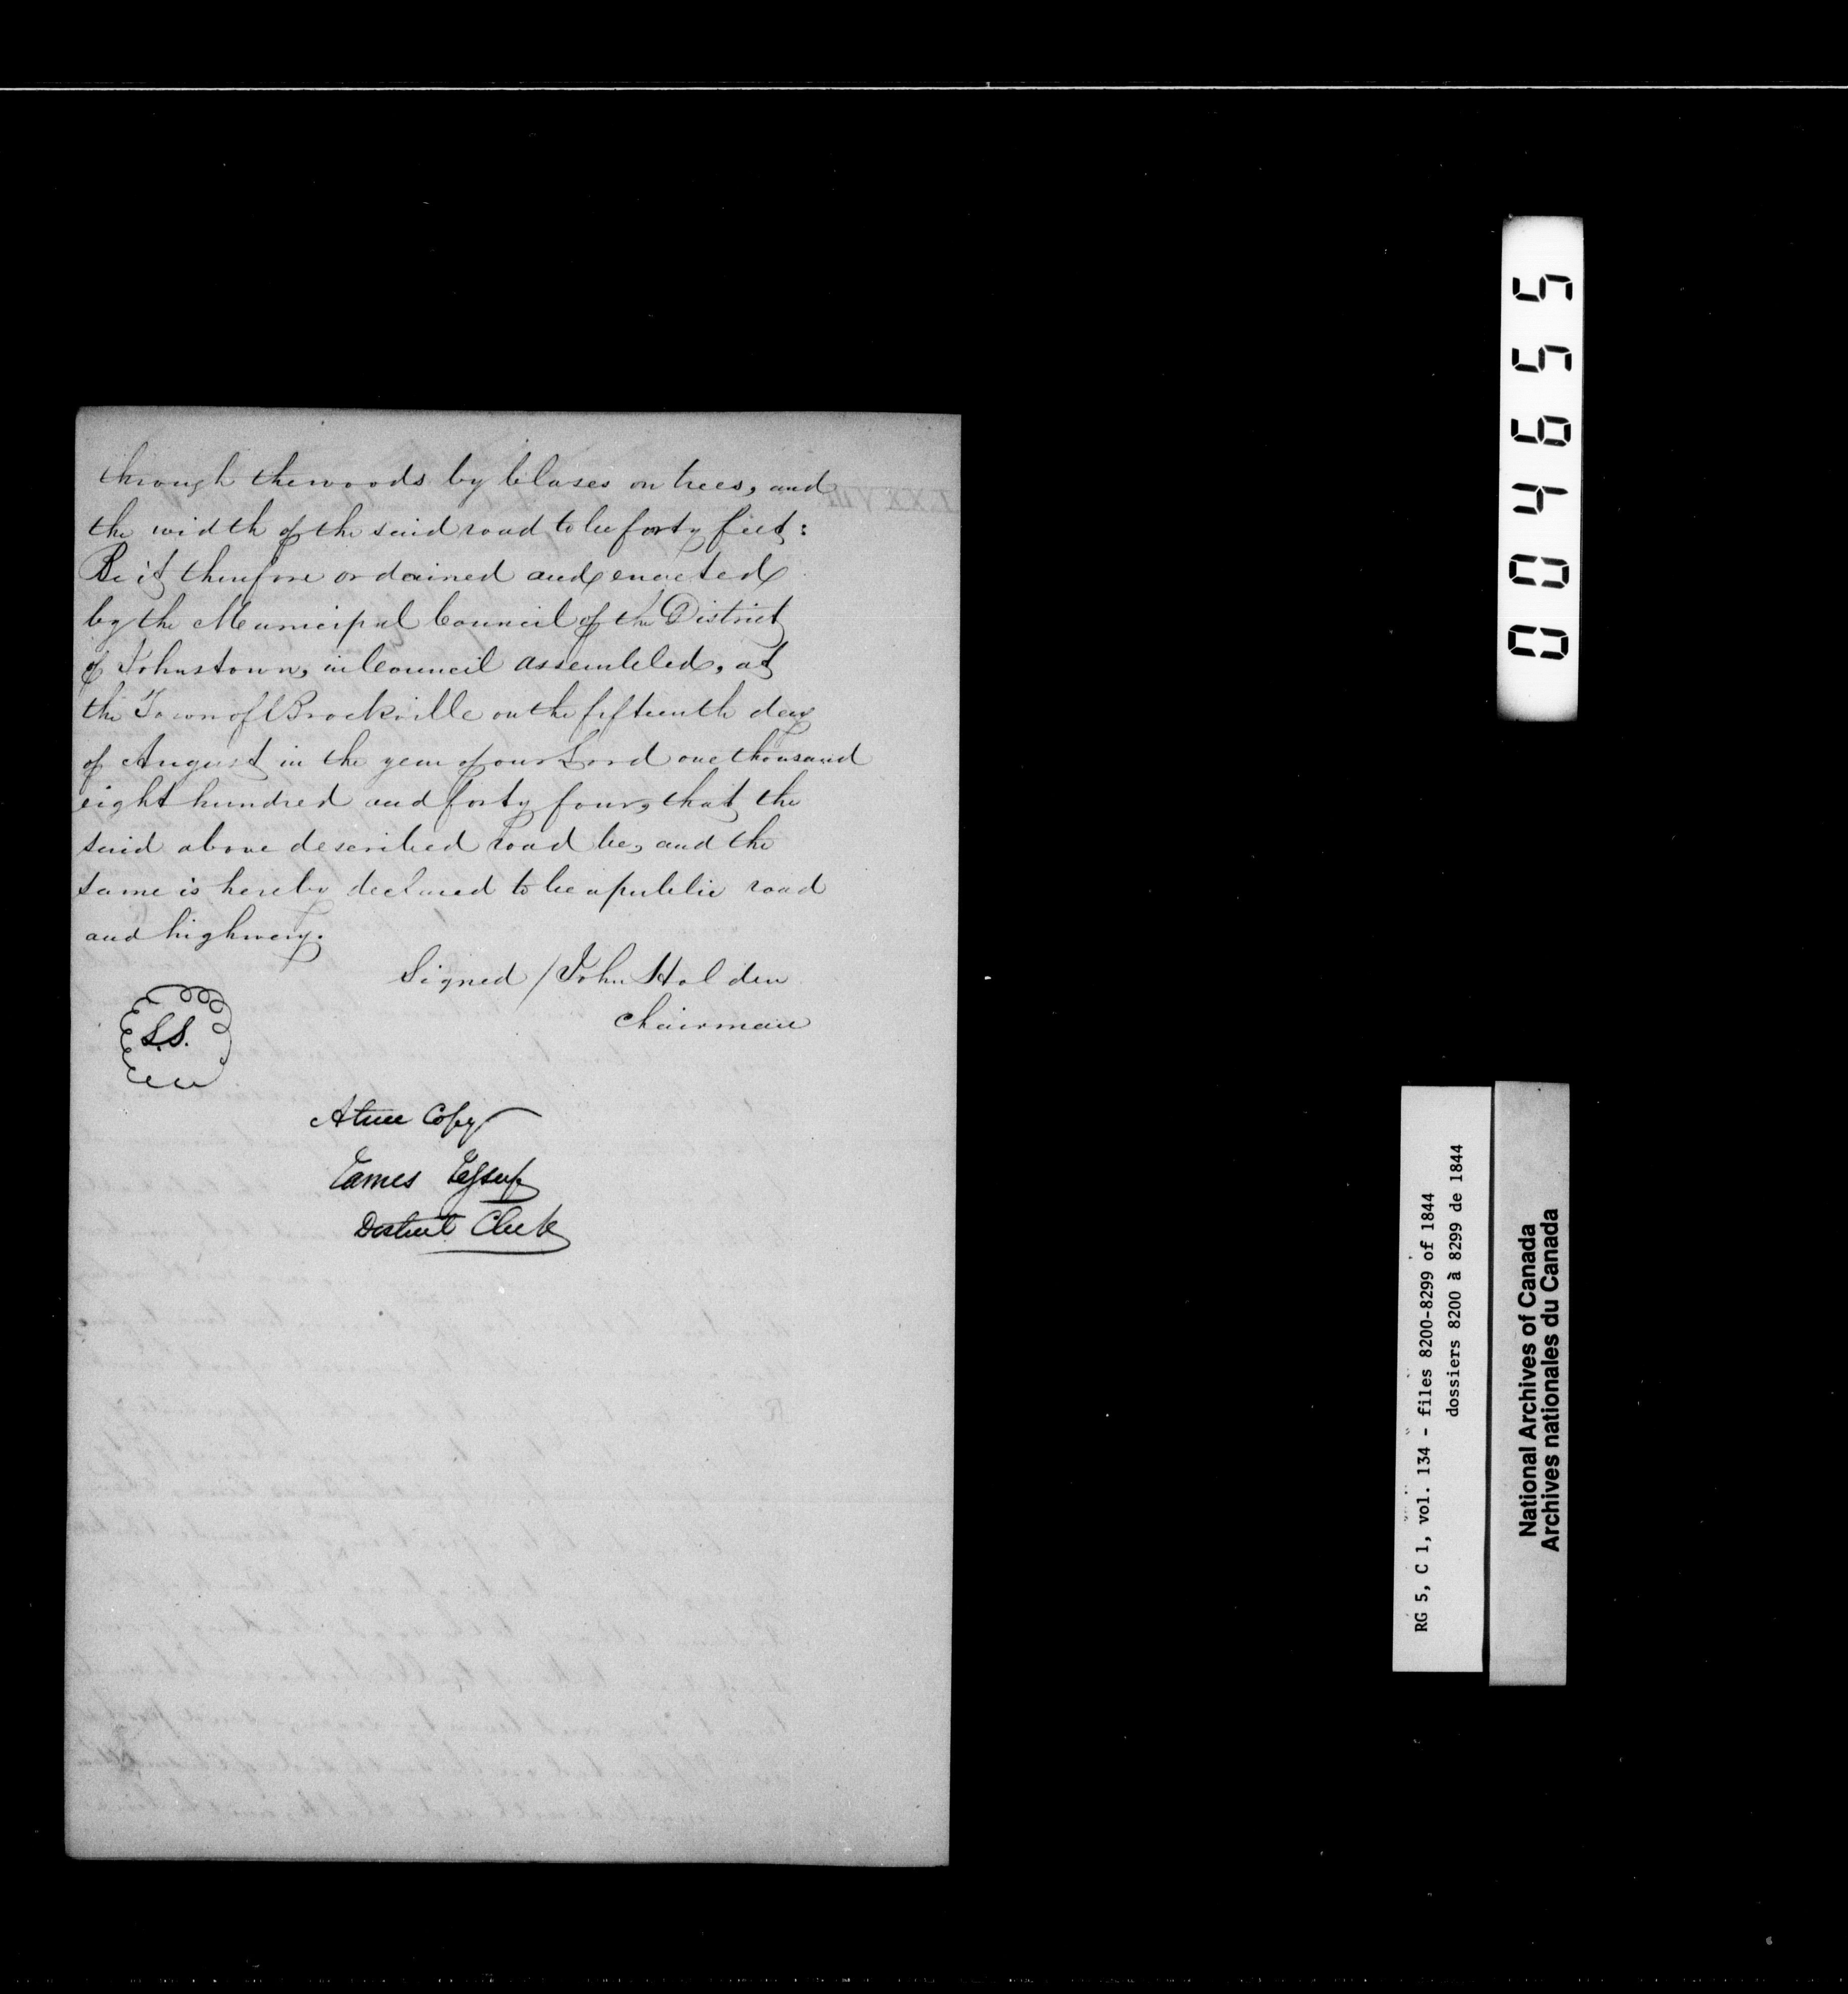 through the woods by blases on trees, and
the width of the said road to be forty feet:
Be it therefore ordained and enacted
by the Municipal Council of the District
of Johnstown, in Council assembled, at
the Town of Brockville on the fifteenth day
of August in the year of our Lord one thousand
eight hundred and forty four, that the
said above described road be, and the
same is hereby declared to be a public road
and highway.
Signed / John Holden
Chairman
L.S.
A true Copy
James Jessup
District Clerk
004655
RG 5, C 1, vol. 134 - files 8200-8299 of 1844
dossiers 8200 à 8299 de 1844
National Archives of Canada
Archives nationales du Canada